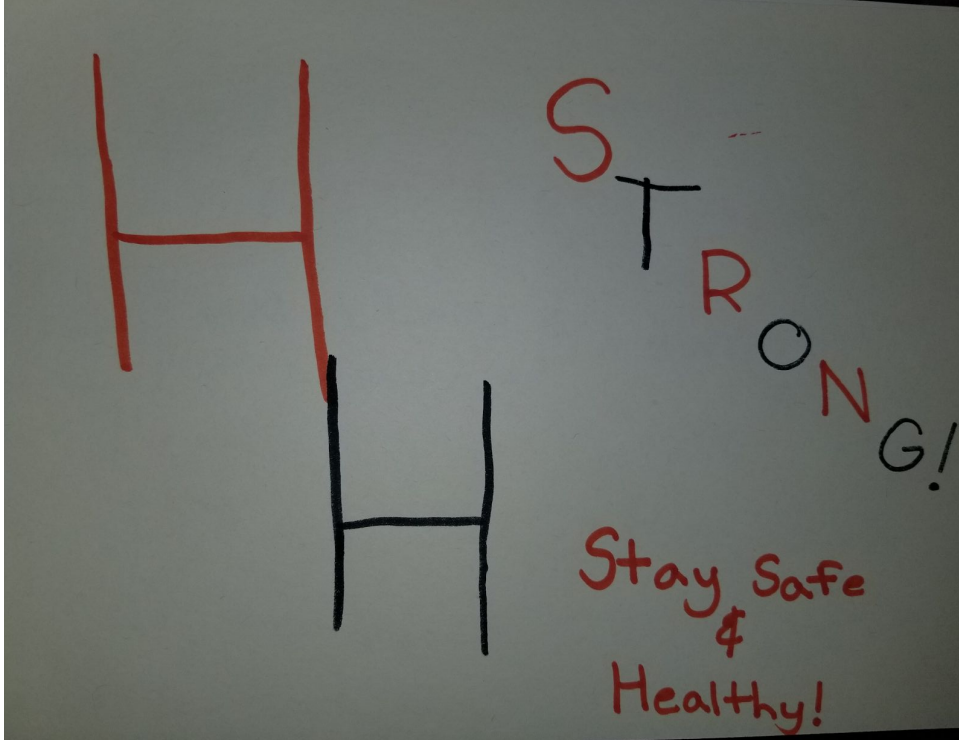 HH
STRONG!
Stay Safe
&
Healthy!